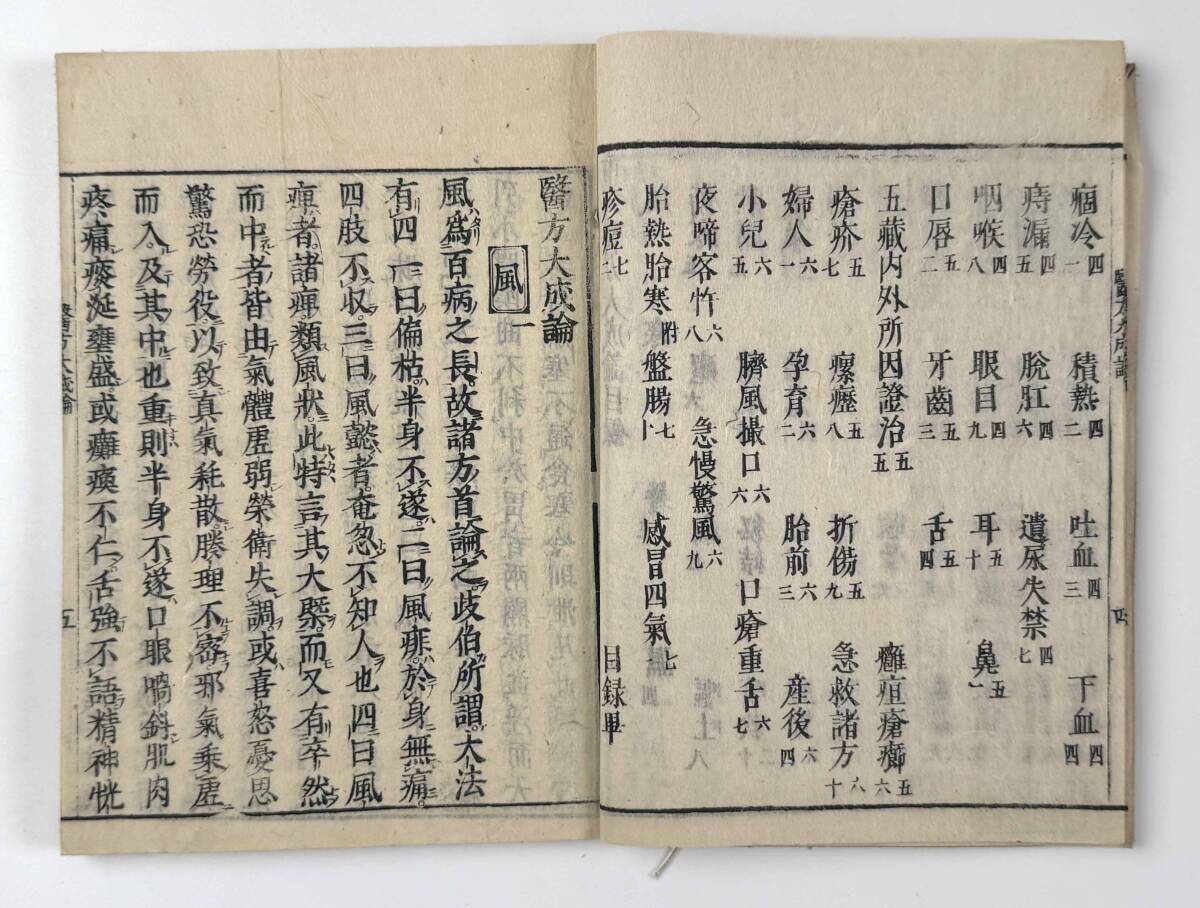 痼冷四一 積熱四二 吐血四三 下血四四
痔漏四五 脫肛四六 遺尿失禁四七
咽喉四八 眼目四九 耳十五 鼻五一
口唇五二 牙齒五三 舌五四
五藏内外所因證治五五 癰疽瘡癤五六
瘡疥五七 瘰癧五八 折傷五九 急救諸方六十
婦人六一 孕育六二 胎前六三 產後六四
小兒六五 臍風撮口六六 口瘡重舌六七
夜啼客忤六八 急慢驚風六九
胎熱胎寒附盤腸七十 感冒四氣七一
疹痘七二 目録畢
醫方大成論
風一
風爲百病之長故諸方首論之岐伯所謂大法
有四一曰偏枯半身不遂二曰風痱於身無痛
四肢不収三曰風懿者奄忽不知人也四曰風
痺者諸痺類風狀此特言其大槩而又有卒然
而中者皆由氣體虗弱榮衛失調或喜怒憂思
驚恐勞役以致真氣耗散腠理不密邪氣乘虗
而入及其中也重則半身不遂口眼喎斜肌肉
疼痛痰涎壅盛或癱瘓不仁舌強不語精神恍
醫方大成論
五